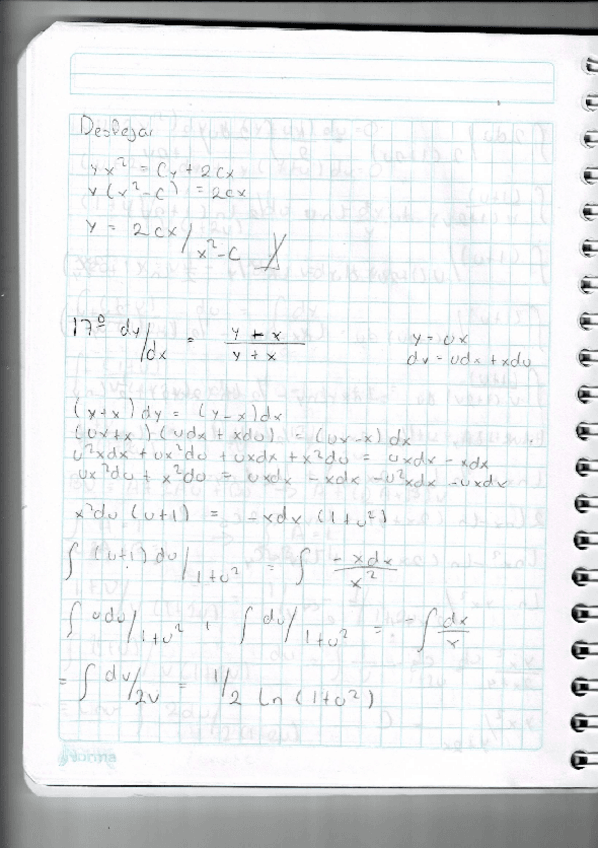 Despejar
yx² = Cy + 2Cx
y(x² - C) = 2Cx
y = 2Cx / x² - C
17º dy/dx = y + x / y + x    y = ux
dy = udx + xdu
(y+x) dy = (y-x) dx
(ux+x) (udx + xdu) = (ux-x) dx
u²xdx + ux²du + uxdx + x²du = uxdx - xdx
ux²du + x²du = uxdx - xdx - u²xdx - uxdx
x²du (u+1) = -xdx (1+u²)
∫ (u+1) du / 1+u² = ∫ -xdx / x²
∫ udu / 1+u² + ∫ du / 1+u² = -∫ dx / x
= ∫ dv / 2v = 1/2 Ln (1+u²)